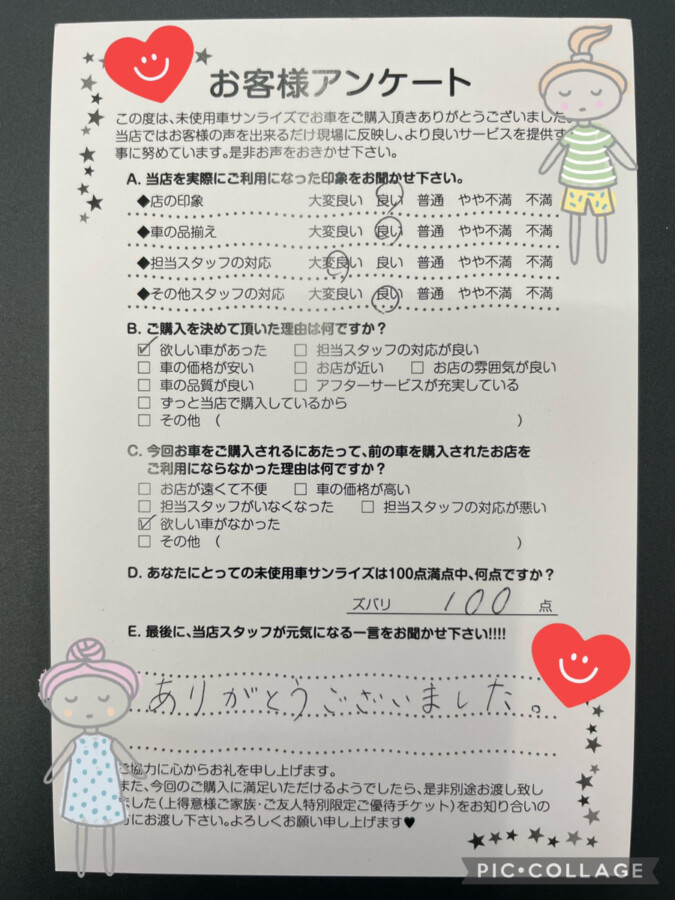 お客様アンケート
この度は、未使用車サンライズでお車をご購入頂きありがとうございました。
当店ではお客様の声を出来るだけ現場に反映し、より良いサービスを提供す
事に努めています。是非お声をおきかせ下さい。
A. 当店を実際にご利用になった印象をお聞かせ下さい。
◆店の印象 大変良い 良い 普通 やや不満 不満
◆車の品揃え 大変良い 良い 普通 やや不満 不満
◆担当スタッフの対応 大変良い 良い 普通 やや不満 不満
◆その他スタッフの対応 大変良い 良い 普通 やや不満 不満
B. ご購入を決めて頂いた理由は何ですか?
☑ 欲しい車があった □ 担当スタッフの対応が良い
□ 車の価格が安い □ お店が近い □ お店の雰囲気が良い
□ 車の品質が良い □ アフターサービスが充実している
□ ずっと当店で購入しているから
□ その他 ( )
C. 今回お車をご購入されるにあたって、前の車を購入されたお店を
ご利用にならなかった理由は何ですか?
□ お店が遠くて不便 □ 車の価格が高い
□ 担当スタッフがいなくなった □ 担当スタッフの対応が悪い
☑ 欲しい車がなかった
□ その他 ( )
D. あなたにとっての未使用車サンライズは100点満点中、何点ですか?
ズバリ 100 点
E. 最後に、当店スタッフが元気になる一言をお聞かせ下さい!!!!
ありがとうございました。
ご協力に心からお礼を申し上げます。
また、今回のご購入に満足いただけるようでしたら、是非別途お渡し致し
ました(上得意様ご家族・ご友人特別限定ご優待チケット)をお知り合いの
方にお渡し下さい。よろしくお願い申し上げます♥
PIC•COLLAGE